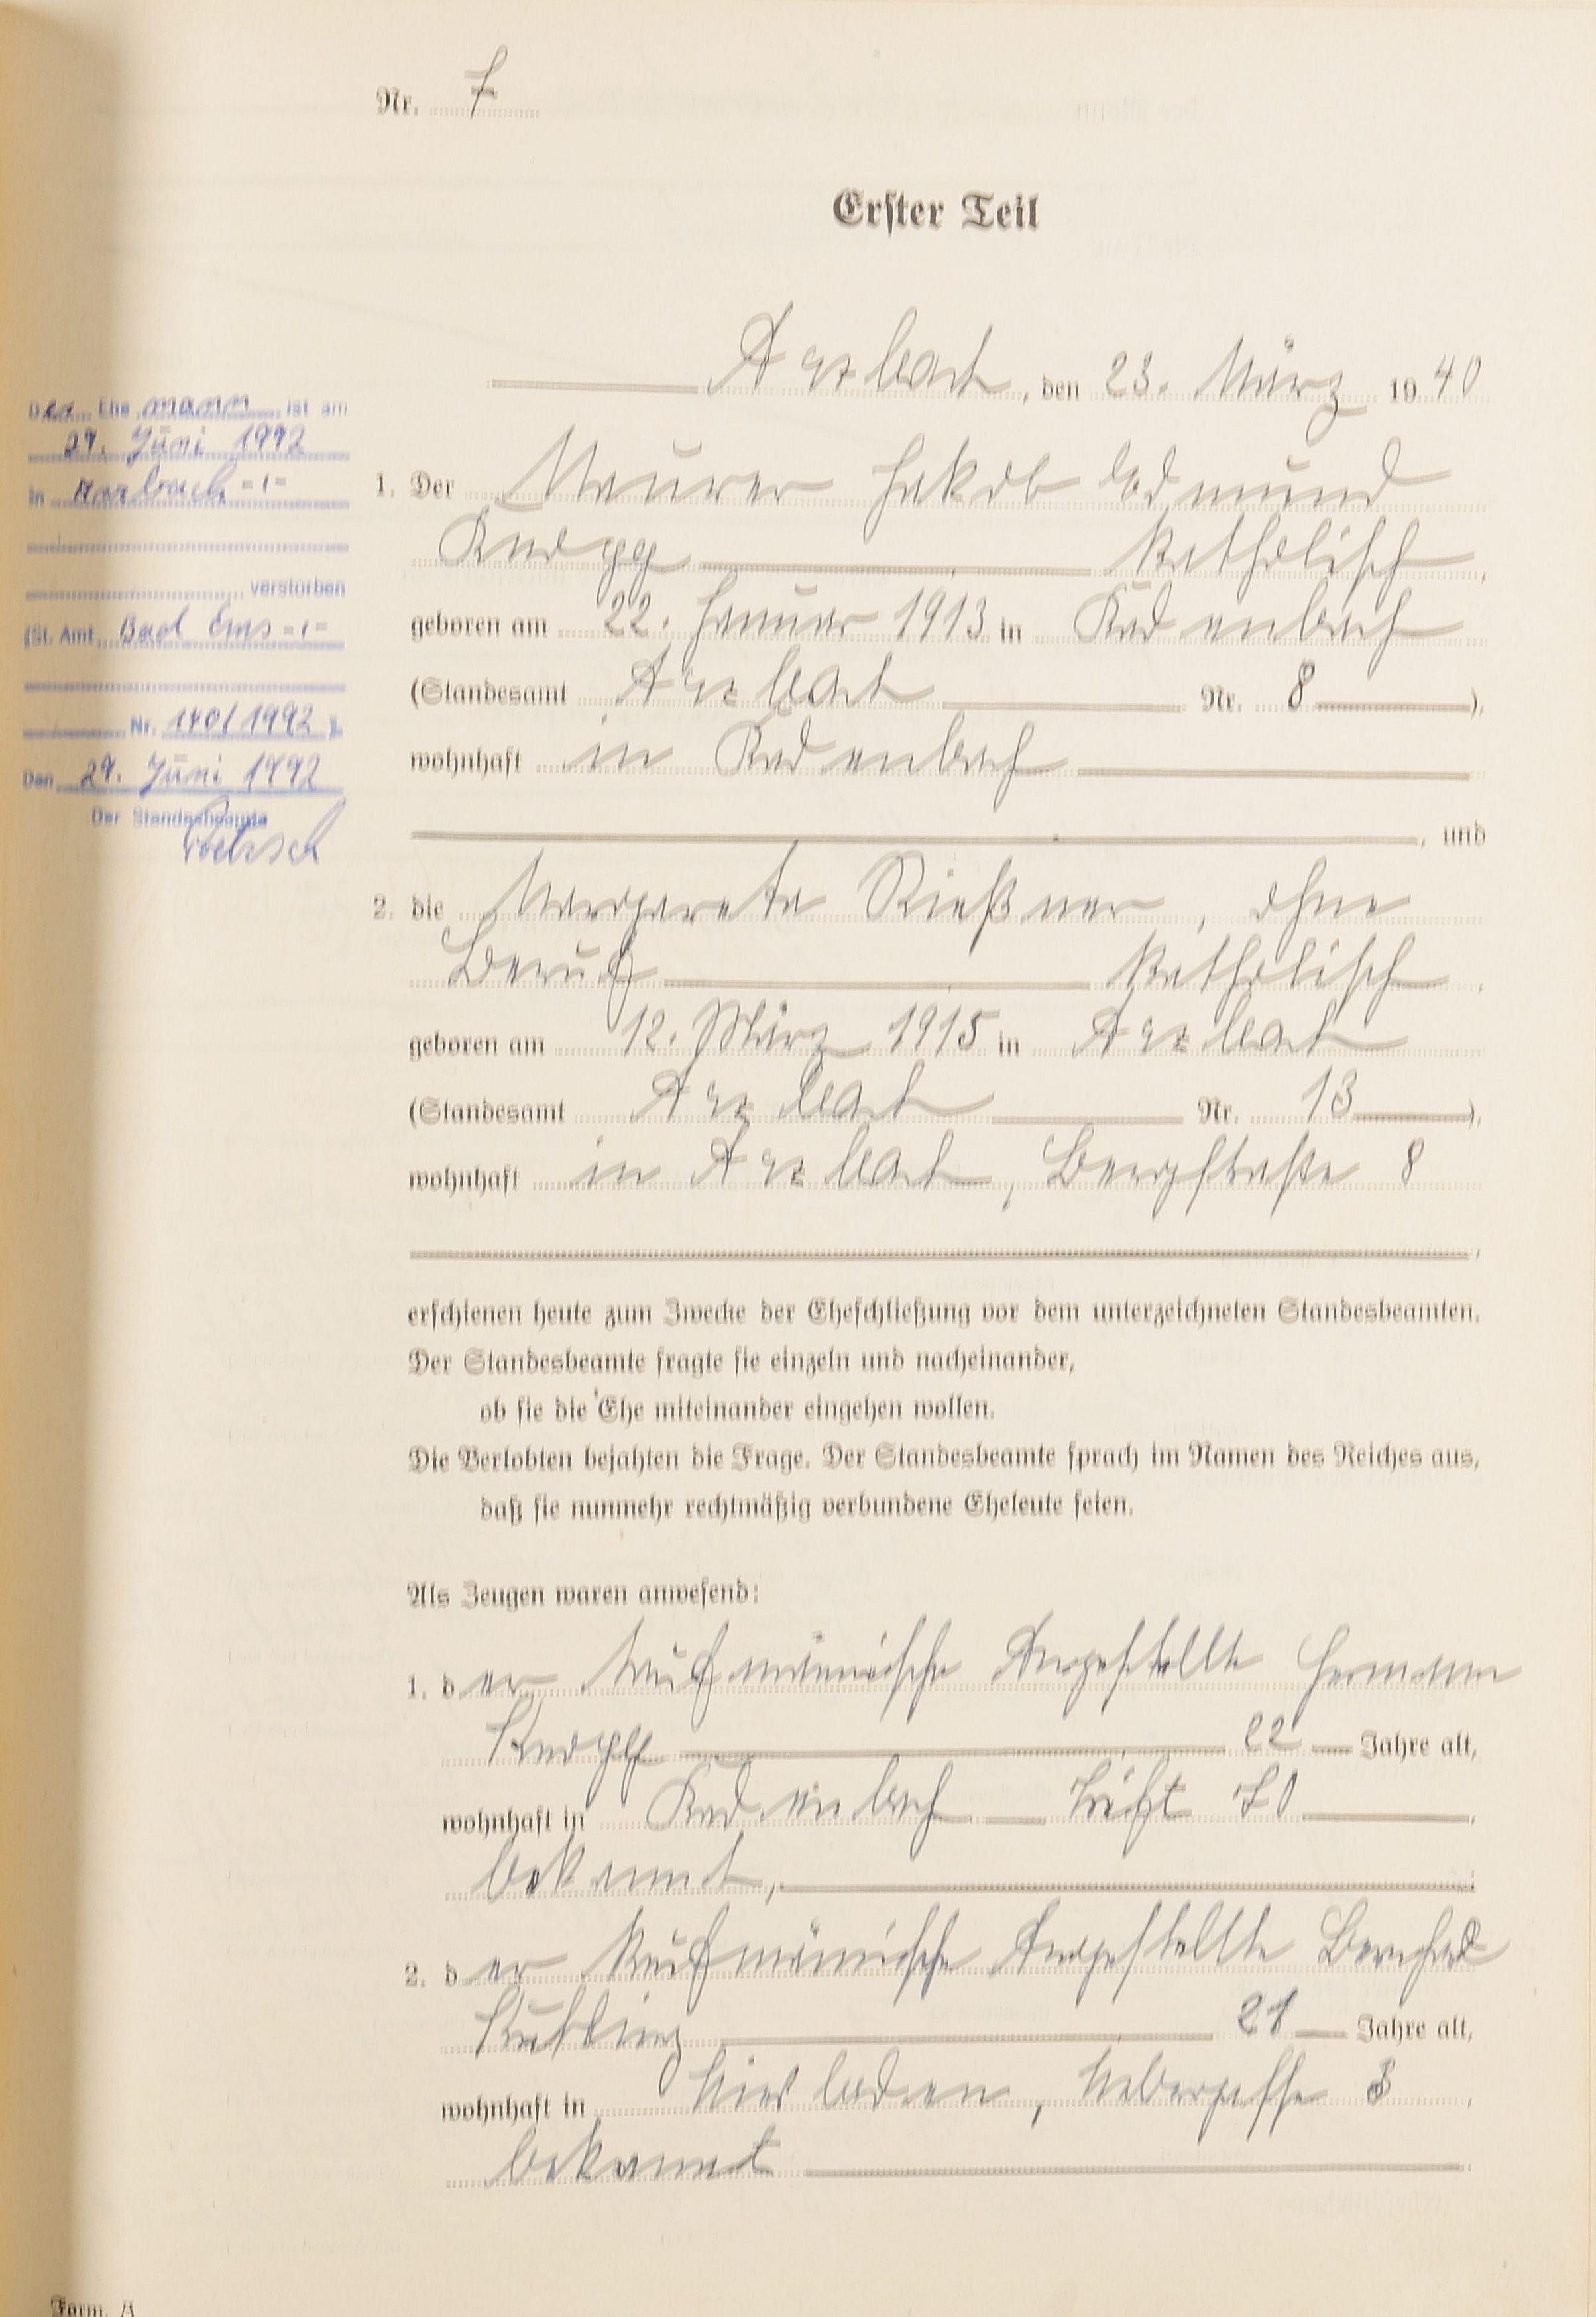 Nr. 7
Erster Teil
Arzbach, den 23. März 1940
Der Ehemann ist am
29. Juni 1992
in Arzbach -/-
verstorben
(St. Amt Bad Ems -/-
Nr. 140/1992 ).
Den 29. Juni 1992
Der Standesbeamte
1. Der Maurer Jakob Edmund
Knopp katholisch,
geboren am 22. Januar 1913 in Kadenbach
(Standesamt Arzbach Nr. 8 ),
wohnhaft in Kadenbach
, und
2. die Margareta Rießner, ohne
Beruf katholisch,
geboren am 12. März 1915 in Arzbach
(Standesamt Arzbach Nr. 13 ),
wohnhaft in Arzbach, Bergstraße 8
erschienen heute zum Zwecke der Eheschließung vor dem unterzeichneten Standesbeamten.
Der Standesbeamte fragte sie einzeln und nacheinander,
ob sie die Ehe miteinander eingehen wollen.
Die Verlobten bejahten die Frage. Der Standesbeamte sprach im Namen des Reiches aus,
daß sie nunmehr rechtmäßig verbundene Eheleute seien.
Als Zeugen waren anwesend:
1. der kaufmännische Angestellte Hermann
Knopp 22 Jahre alt,
wohnhaft in Kadenbach 70
bekannt,
2. der kaufmännische Angestellte Bernhard
21 Jahre alt,
wohnhaft in Wiesbaden, Webergasse 3,
bekannt
Form. A